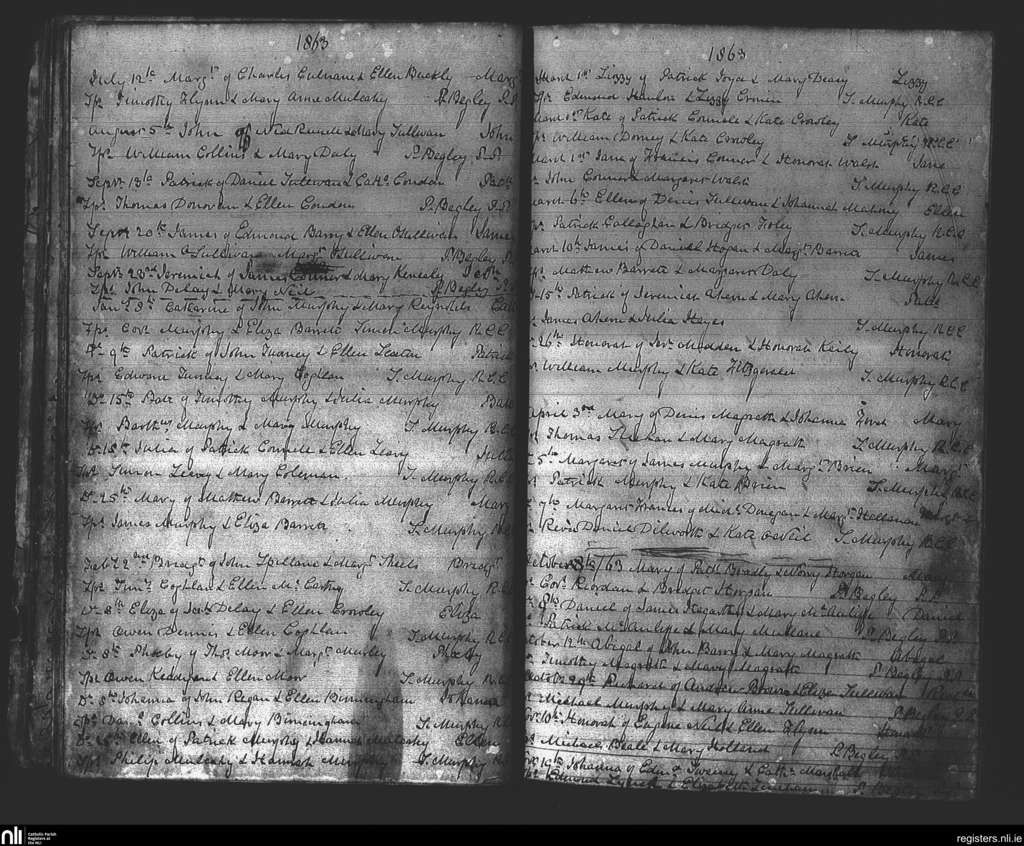 1863
July 12th Margt of Charles Culnane & Ellen Buckly Marg
Sps Timothy Flynn & Mary Anne Mulcahy P. Begley P.P.
August 5th John of & Mary Sullivan John
Sps William Collins & Mary Daly P. Begley P.P.
Septr 13th Patrick of Daniel Sullivan & Cathe Condon Patk
Sps Thomas Donovan & Ellen Condon P. Begley P.P.
Septr 20th James of Edmond Barry & Ellen OSullivan James
Sps William OSullivan & Margt Sullivan P. Begley P.
Septr 23rd Jeremiah of James Connor & Mary Kenealy
Sps John Delay & Mary Neil P. Begley P.
Jany 8th Catharine of John Murphy & Mary Reynolds Cath
Sps Cors Murphy & Eliza Barrett Timoth Murphy R.C.C.
Do 9th Patrick of John & Ellen Patrick
Sps Edward & Mary Coghlan T. Murphy R.C.C.
Do 15th Batt of Timothy Murphy & Julia Murphy Batt
Sps Barthw Murphy & Mary Murphy T. Murphy R.C.C
Do 18th Julia of Patrick Connell & Ellen Leary Julia
Sps Leary & Mary Coleman T. Murphy R.C.C
Do 25th Mary of Mathew Barrett & Julia Murphy Mary
Sps James Murphy & Eliza Barrett T. Murphy R.C
Feby 2nd Bridgt of John Spillane & Margt Sheils Bridgt
Sps Timy Coghlan & Ellen McCarthy T. Murphy R.C
Do 8th Eliza of Delay & Ellen Crowley Eliza
Sps Owen Dennis & Ellen Coghlan T. Murphy R.C
Do 8th Pheby of Thos Moor & Margt Murley Pheby
Sps Owen Keady and Ellen Moor T. Murphy R.C
Do 8th Johanna of John Regan & Ellen Birmingham Johanna
Sps Danl Collins & Mary Birmingham T. Murphy R.C
Do Ellen of Patrick Murphy & Hannah Mulcahy Ellen
Sps Philip Mulcahy & Hannah Murphy T. Murphy R.C
1863
March 1st Lizzy of Patrick Joyce & Mary Deasy Lizzy
Edmond Hanlon & Lizzy Cronin T. Murphy R.C.C
Kate of Patrick Connell & Kate Crowley Kate
William Dorney & Kate Crowley T. Murphy R.C.C
March 1st Jane of Francis Connor & Honorah Walsh Jane
John Connor & Margaret Walsh T. Murphy R.C.C
March 6th Ellen of Denis Sullivan & Johannah Mahony Ellen
Patrick Callaghan & Bridget Foley T. Murphy R.C.C
March 10th James of Daniel Hogan & Margt Barrett James
Mathew Barrett & Margaret Daly T. Murphy R.C.C
15th Patrick of Jeremiah Ahern & Mary Ahern Patk
James Ahern & Julia Hayes T. Murphy R.C.C
26th Honorah of Jer Madden & Honorah Keily Honorah
William Murphy & Kate Fitzgerald T. Murphy R.C.C
April 3rd Mary of Denis Magrath & Johanna Mary
Thomas Sheehan & Mary Magrath T. Murphy R.C.C
5th Margaret of James Murphy & Margt OBrien Margt
Patrick Murphy & Kate OBrien T. Murphy R.C.C
9th Margaret Frances of Michl Donegan & Margt Hallanan
Revd Daniel Dilworth & Kate ONeil T. Murphy R.C.C
October 8th/63 Mary of Patk Bradly & Horgan Mary
Cors Reordan & Bridget Horgan P. Begley P.P.
9th Daniel of James Hogarthy & Mary McAuliffe Daniel
Patrick McAuliffe & Mary Mullane P. Begley P.P.
October 12th Abigal of John Barry & Mary Magrath Abigal
Timothy Magrath & Mary Magrath P. Begley P.P.
October 29th Richard of Andrew Brown & Eliza Sullivan
Michael Murphy & Mary Anne Sullivan P. Begley P.P.
Novr 10th Honorah of Eugene Neil & Ellen Flynn
Michael Beale & Mary Holland P. Begley P.P.
Novr 19th Johanna of Edmd & Cathe Marshall
Edmond & P. Begley P.P.
nli Catholic Parish Registers at the NLI
registers.nli.ie